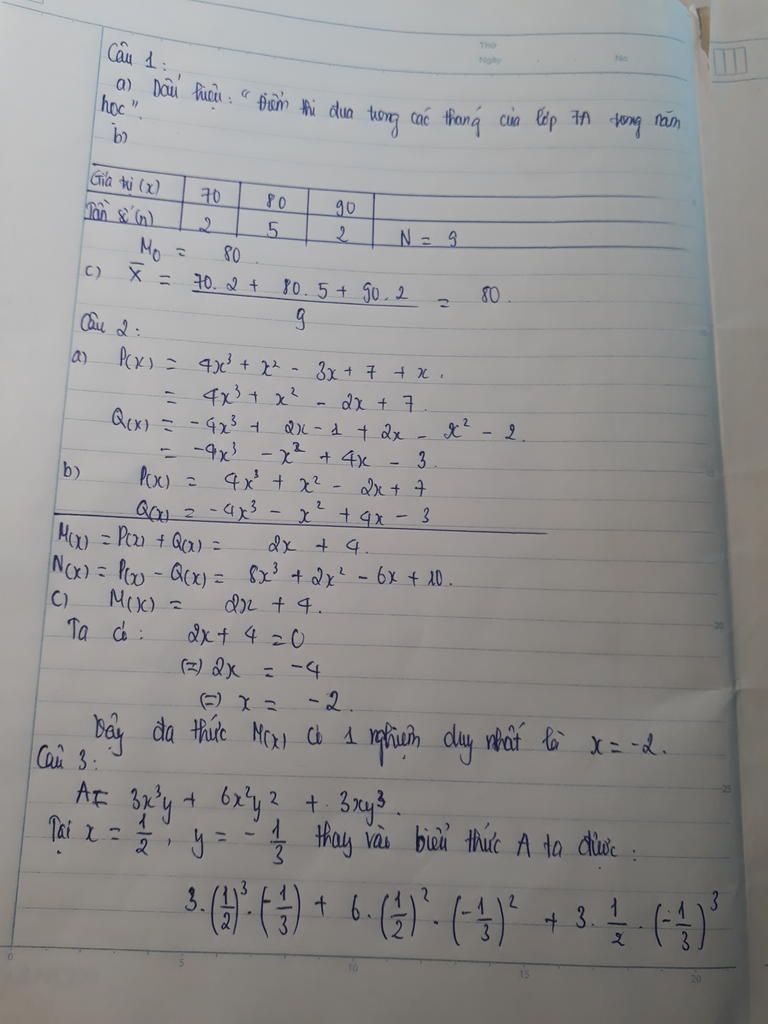 Thứ
Ngày No
Câu 1:
a) Dấu hiệu: "Điểm thi đua trong các tháng của lớp 7A trong năm
học".
b)
Giá trị (x) 70 80 90
Tần số (n) 2 5 2 N = 9
M₀ = 80.
c) X̅ = (70.2 + 80.5 + 90.2)/9 = 80.
Câu 2:
a) P(x) = 4x³ + x² - 3x + 7 + x.
= 4x³ + x² - 2x + 7.
Q(x) = -4x³ + 2x - 1 + 2x - x² - 2.
= -4x³ - x² + 4x - 3.
b) P(x) = 4x³ + x² - 2x + 7
Q(x) = -4x³ - x² + 4x - 3
M(x) = P(x) + Q(x) = 2x + 4.
N(x) = P(x) - Q(x) = 8x³ + 2x² - 6x + 10.
c) M(x) = 2x + 4.
Ta có: 2x + 4 = 0
(=) 2x = -4
(=) x = -2.
Vậy đa thức M(x) có 1 nghiệm duy nhất là x = -2.
Câu 3:
A = 3x³y + 6x²y² + 3xy³.
Tại x = 1/2, y = -1/3 thay vào biểu thức A ta được:
3.(1/2)³.(-1/3) + 6.(1/2)².(-1/3)² + 3.1/2.(-1/3)³
0 5 10 15 20
20
25